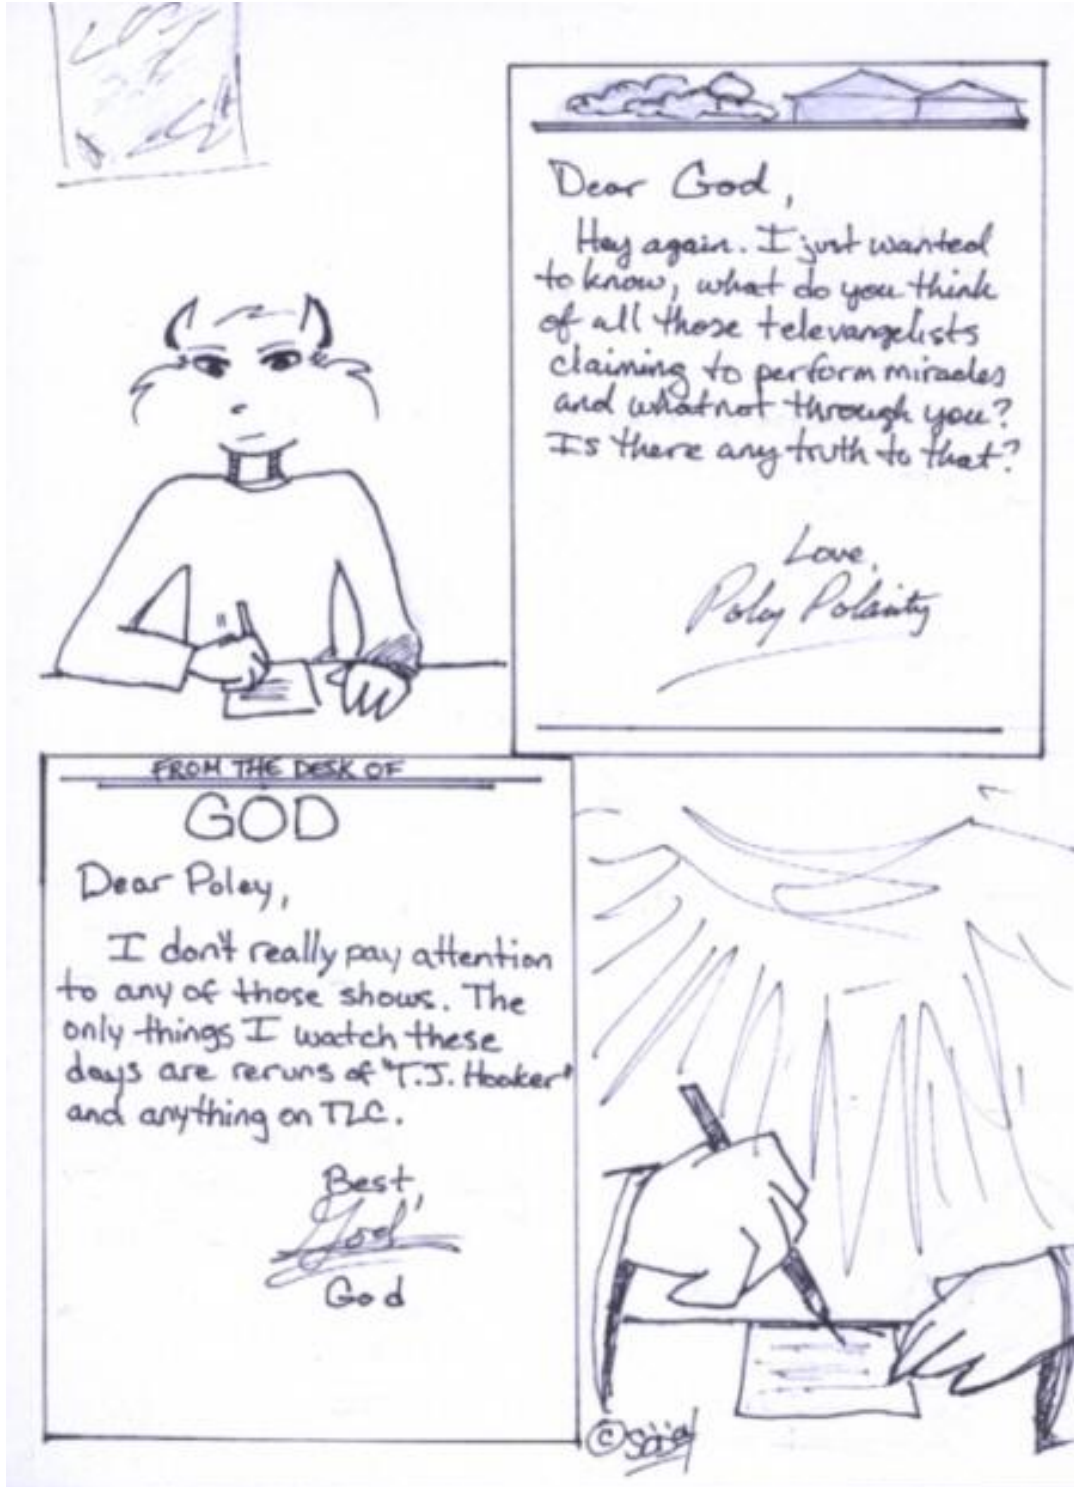 Dear God,
Hey again. I just wanted
to know, what do you think
of all those televangelists
claiming to perform miracles
and whatnot through you?
Is there any truth to that?
Love,
Poley Polarity
FROM THE DESK OF
GOD
Dear Poley,
I don't really pay attention
to any of those shows. The
only things I watch these
days are reruns of "T.J. Hooker"
and anything on TLC.
Best,
God
God
©